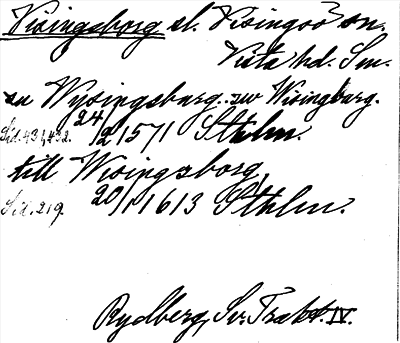 Visingsborg sl. Visingsö sn.
Vista hd. Sm.
zu Wysingsburg.. zw Wisingburg.
Sid. 431, 432. 24/2 1571 Sthlm.
till Wisingsborg,
Sid. 219. 20/1 1613 Sthlm.
Rydberg, Sv. Trakt. IV.